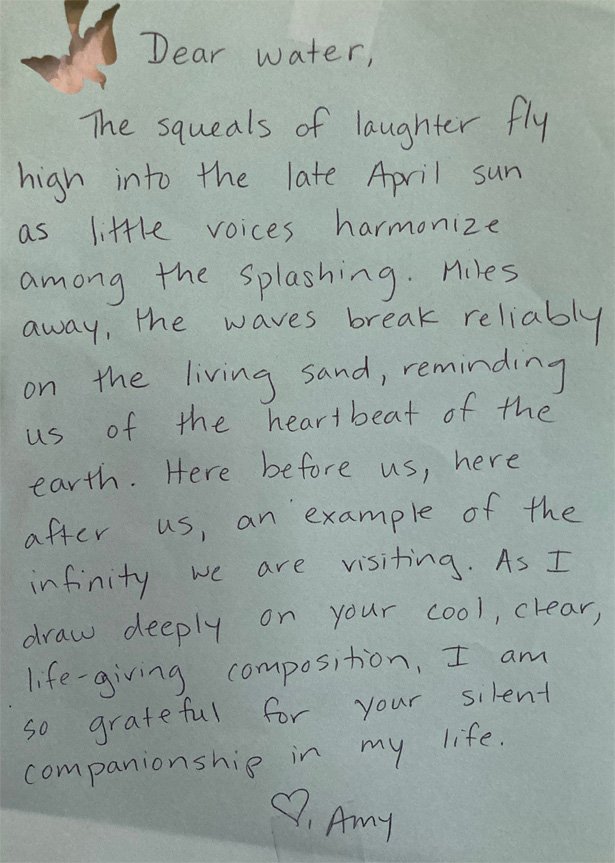 Dear water,
The squeals of laughter fly
high into the late April sun
as little voices harmonize
among the splashing. Miles
away, the waves break reliably
on the living sand, reminding
us of the heartbeat of the
earth. Here before us, here
after us, an example of the
infinity we are visiting. As I
draw deeply on your cool, clear,
life-giving composition, I am
so grateful for your silent
companionship in my life.
♡, Amy